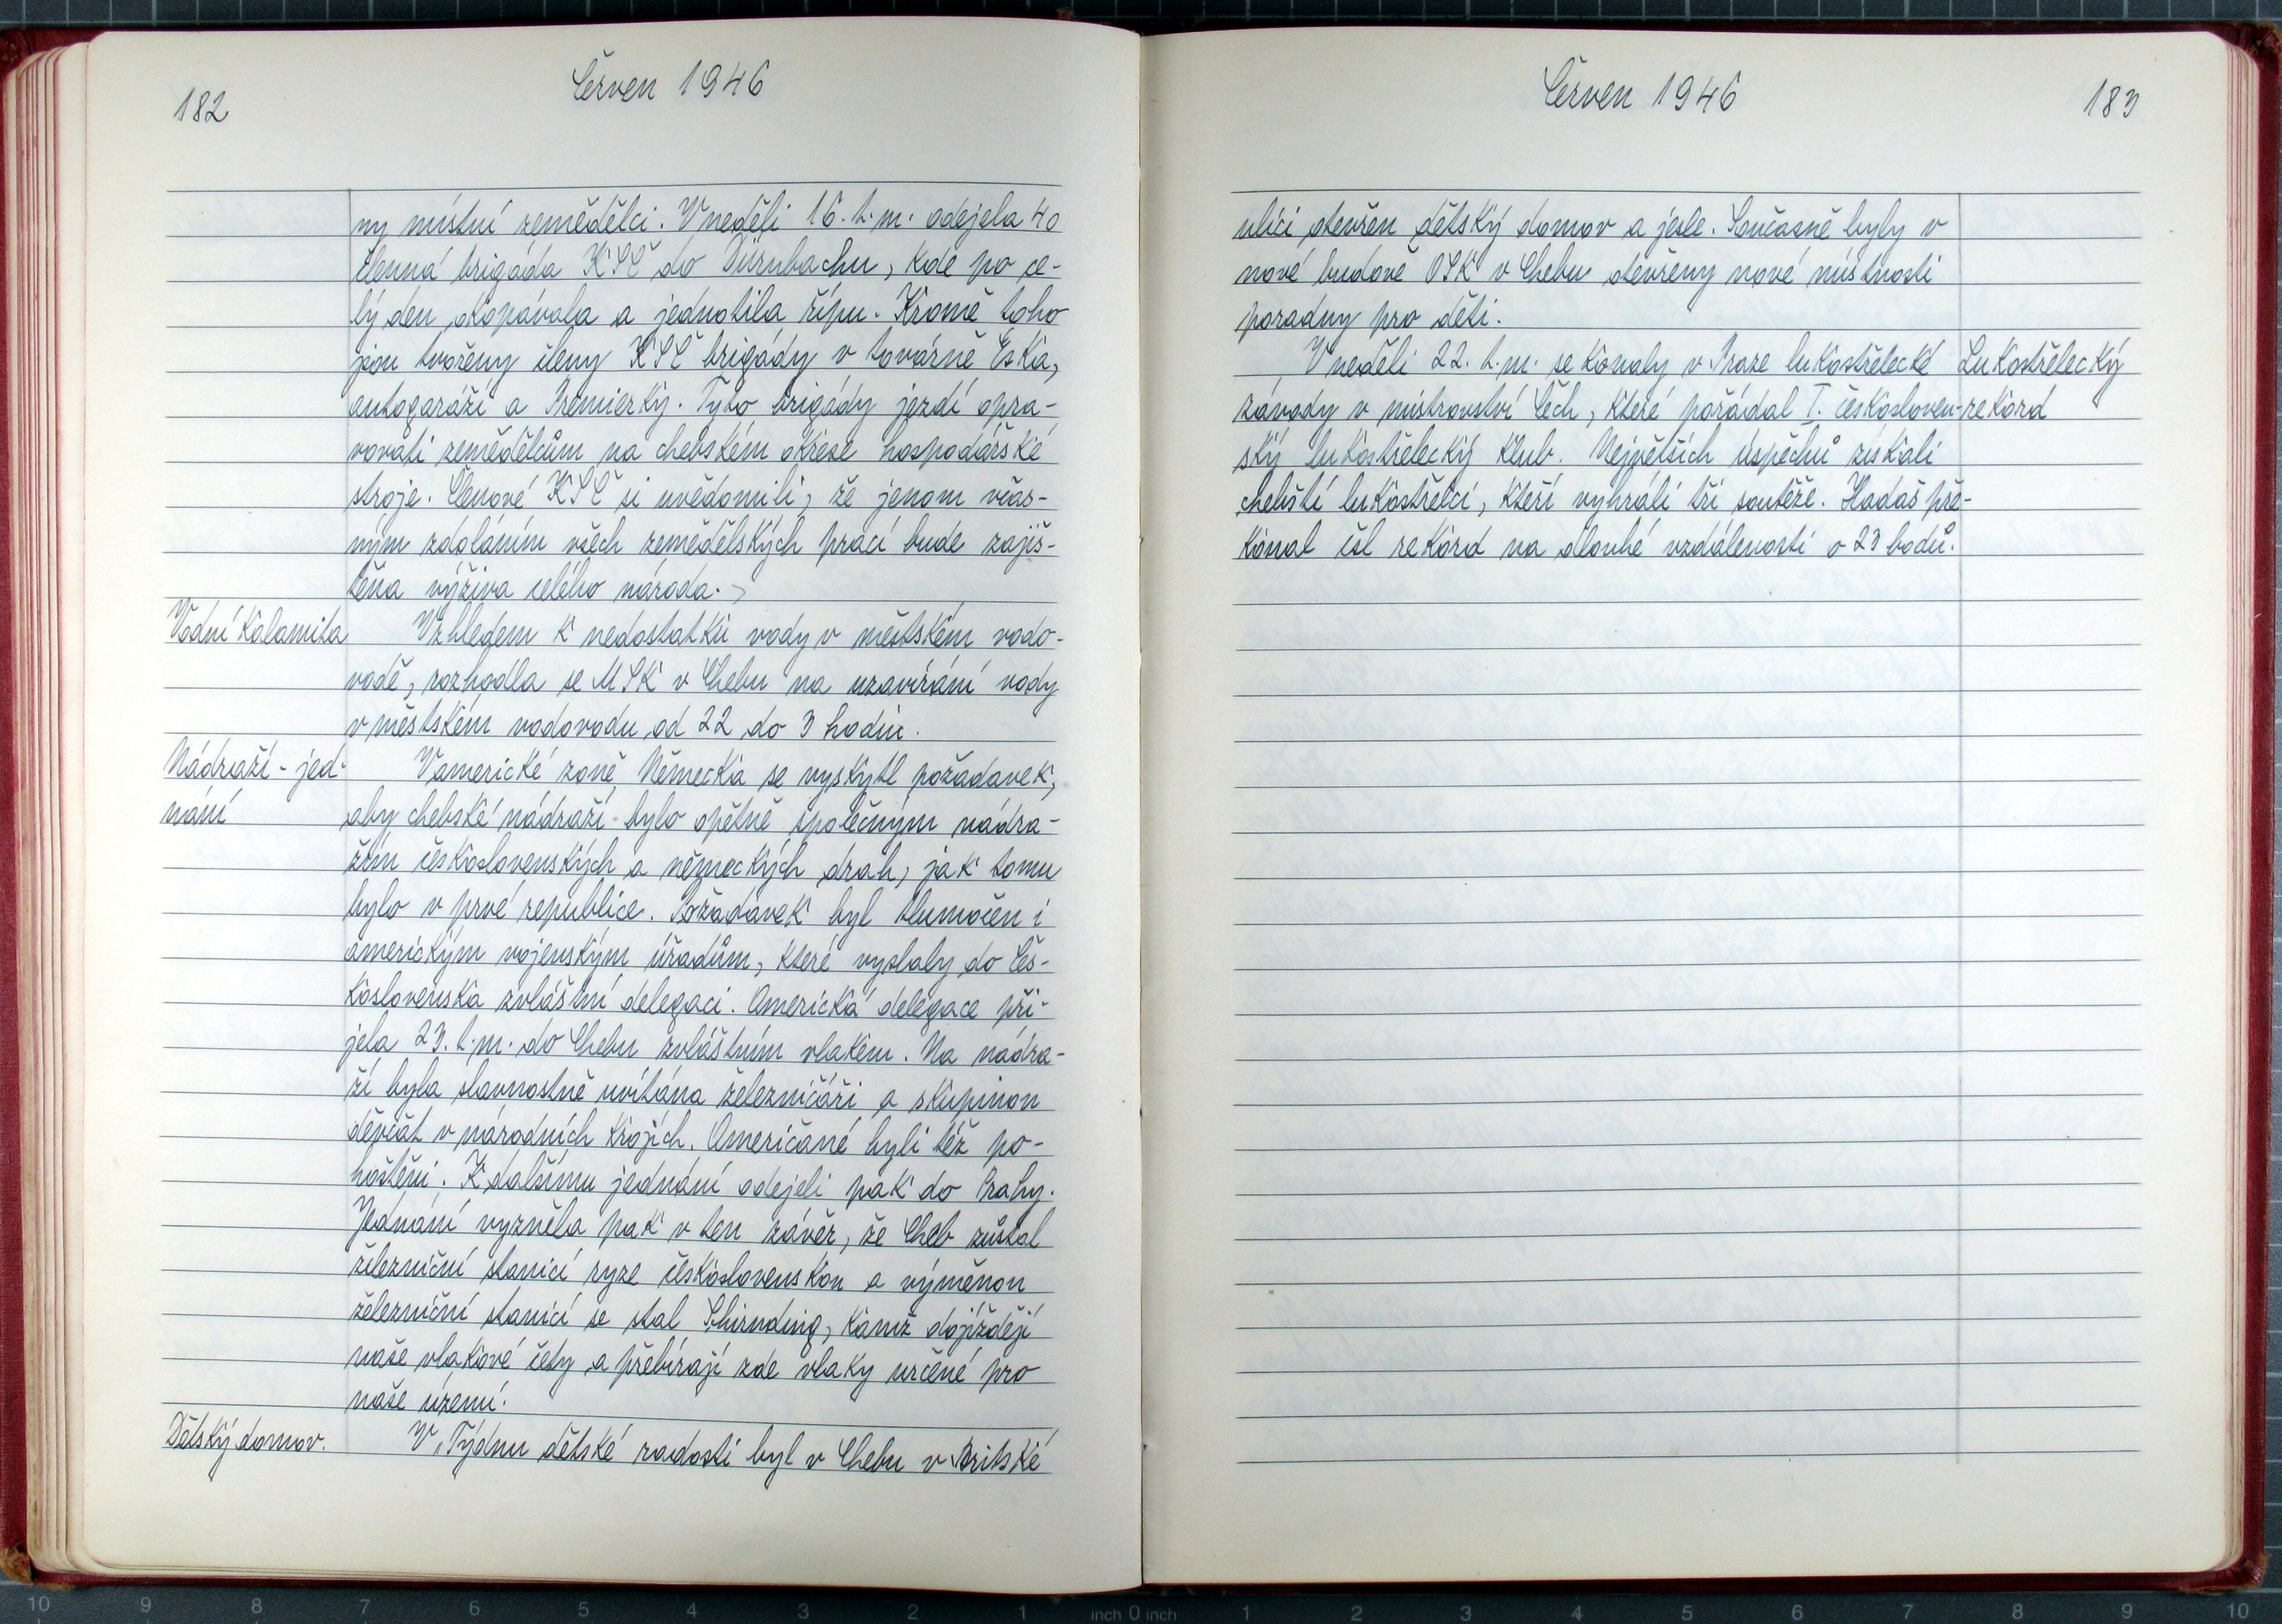 182
Červen 1946
ny místní zemědělci. V neděli 16. t. m. odejela 40
členná brigáda KSČ do Dürnbachu, kde po ce-
lý den okopávala a jednotila řípu. Kromě toho
jsou tvořeny členy KSČ brigády v továrně Eska,
autogaráží a Premierky. Tyto brigády jezdí opra-
vovati zemědělcům na chebském okrese hospodářské
stroje. Členové KSČ si uvědomili, že jenom včas-
ným zdoláním všech zemědělských prací bude zajiš-
těna výživa celého národa.
Vodní kalamita
Vzhledem k nedostatku vody v městském vodo-
vodě, rozhodla se MSK v Chebu na uzavírání vody
v městském vodovodu od 22 do 3 hodin.
Nádraží - jed-
nání
V americké zoně Německa se vyskytl požadavek,
aby chebské nádraží bylo opětně společným nádra-
žím československých a německých drah, jak tomu
bylo v prvé republice. Požadavek byl tlumočen i
americkým vojenským úřadům, které vyslaly do Čes-
koslovenska zvláštní delegaci. Americká delegace při-
jela 23. t. m. do Chebu zvláštním vlakem. Na nádra-
ží byla slavnostně uvítána železničáři a skupinou
děvčat v národních krojích. Američané byli též po-
hoštěni. K dalšímu jednání odejeli pak do Prahy.
Jednání vyzněla pak v ten závěr, že Cheb zůstal
železniční stanicí ryze československou a výměnou
železniční stanicí se stal Schirnding, kamž dojíždějí
naše vlakové čety a přebírají zde vlaky určené pro
naše území.
Dětský domov.
V „Týdnu dětské radosti byl v Chebu v Britské
Červen 1946
183
ulici otevřen dětský domov a jesle. Současně byly v
nové budově OSK v Chebu otevřeny nové místnosti
poradny pro děti.
V neděli 22. t. m. se konaly v Praze lukostřelecké
Lukostřelecký
závody v mistrovství Čech, které pořádal I. českosloven-
rekord
ský lukostřelecký klub. Největších úspěchů získali
chebští lukostřelci, kteří vyhráli tři soutěže. Hadaš pře-
konal čsl rekord na dlouhé vzdálenosti o 23 bodů.
10 9 8 7 6 5 4 3 2 1 inch 0 inch 1 2 3 4 5 6 7 8 9 10